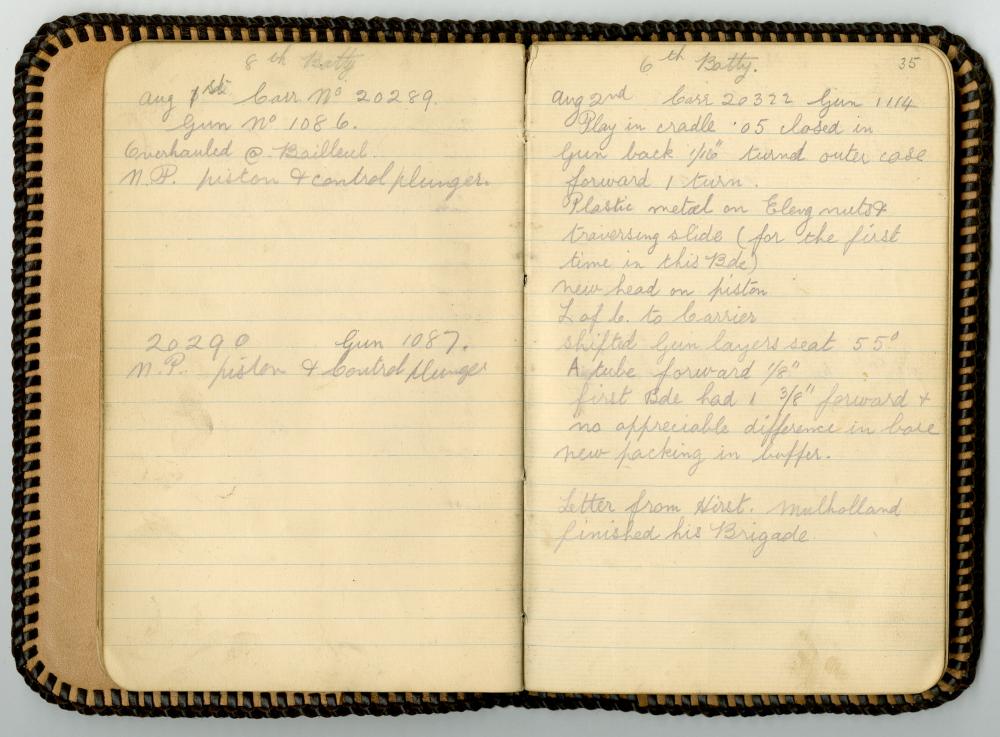 8th Batty
Aug 1st Carr No 20289.
Gun No 1086.
Overhauled @ Bailleul.
N.P. piston & control plunger.
20290 Gun 1087.
N.P. piston & Control plunger
35
6th Batty.
Aug 2nd Carr 20322 Gun 1114
Play in cradle .05 closed in
Gun back 1/16" turnd outer case
forward 1 turn.
Plastic metal on Elevg nuts &
traversing slide (for the first
time in this Bde)
new head on piston
L of C. to Carrier
shifted Gun layers seat 55°
A tube forward 1/8"
first Bde had 1 3/8" forward &
no appreciable difference in bore
new packing in buffer.
Letter from Hirst. Mulholland
finished his Brigade